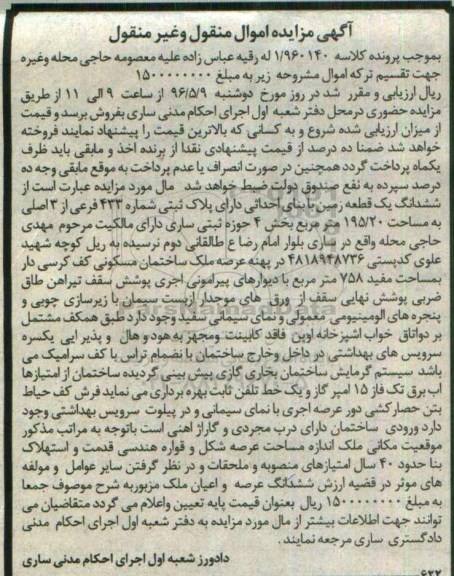 آگهی مزایده اموال منقول وغیر منقول
بموجب پرونده کلاسه ۱/۹۶۰۱۴۰ له رقیه عباس زاده علیه معصومه حاجی محله وغیره
جهت تقسیم ترکه اموال مشروحه زیر به مبلغ ۱۵۰۰۰۰۰۰۰۰
ریال ارزیابی و مقرر شد در روز مورخ دوشنبه ۹۶/۵/۹ از ساعت ۹ الی ۱۱ از طریق
مزایده حضوری درمحل دفتر شعبه اول اجرای احکام مدنی ساری بفروش برسد و قیمت
از میزان ارزیابی شده شروع و به کسانی که بالاترین قیمت را پیشنهاد نمایند فروخته
خواهد شد ضمنا ده درصد از قیمت پیشنهادی نقدا از برنده اخذ و مابقی باید ظرف
یکماه پرداخت گردد همچنین در صورت انصراف یا عدم پرداخت به موقع مابقی وجه ده
درصد سپرده به نفع صندوق دولت ضبط خواهد شد مال مورد مزایده عبارت است از
ششدانگ یک قطعه زمین با بنای احداثی دارای پلاک ثبتی شماره ۴۳۳ فرعی از ۳ اصلی
به مساحت ۱۹۵/۲۰ متر مربع بخش ۴ حوزه ثبتی ساری دارای مالکیت مرحوم مهدی
حاجی محله واقع در ساری بلوار امام رضا ع طالقانی دوم نرسیده به ریل کوچه شهید
علوی کدپستی ۴۸۱۸۹۴۸۷۳۶ در پهنه عرصه ملک ساختمان مسکونی کف کرسی دار
بمساحت مفید ۷۵۸ متر مربع با دیوارهای پیرامونی اجری پوشش سقف تیراهن طاق
ضربی پوشش نهایی سقف از ورق های موجدار ازبست سیمان با زیرسازی چوبی و
پنجره های الومینیومی معمولی و نمای سیمانی سفید وجود دارد طبق همکف مشتمل
بر دواتاق خواب اشپزخانه اوپن فاقد کابینت ومجهز به هود و هال و پذیر ایی یکسره
سرویس های بهداشتی در داخل وخارج ساختمان با نضمام تراس با کف سرامیک می
باشد سیستم گرمایش ساختمان بخاری گازی پیش بینی گردیده ساختمان از امتیازها
اب برق تک فاز ۱۵ امپر گاز و یک خط تلفن ثابت بهره برداری می نماید فرش کف حیاط
بتن حصار کشی دور عرصه اجری با نمای سیمانی و در پیلوت سرویس بهداشتی وجود
دارد ورودی ساختمان دارای درب مجردی و گاراژ اهنی است باتوجه به مراتب مذکور
موقعیت مکانی ملک اندازه مساحت عرصه شکل و قواره هندسی قدمت و استهلاک
بنا حدود ۴۰ سال امتیازهای منصوبه و ملحقات و در نظر گرفتن سایر عوامل و مولفه
های موثر در قضیه ارزش ششدانگ عرصه و اعیان ملک مزبوربه شرح موصوف جمعا
به مبلغ ۱۵۰۰۰۰۰۰۰۰ ریال بعنوان قیمت پایه تعیین واعلام می گردد متقاضیان می
توانند جهت اطلاعات بیشتر از مال مورد مزایده به دفتر شعبه اول اجرای احکام مدنی
دادگستری ساری مرجعه نمایند.
دادورز شعبه اول اجرای احکام مدنی ساری
۶۲۲